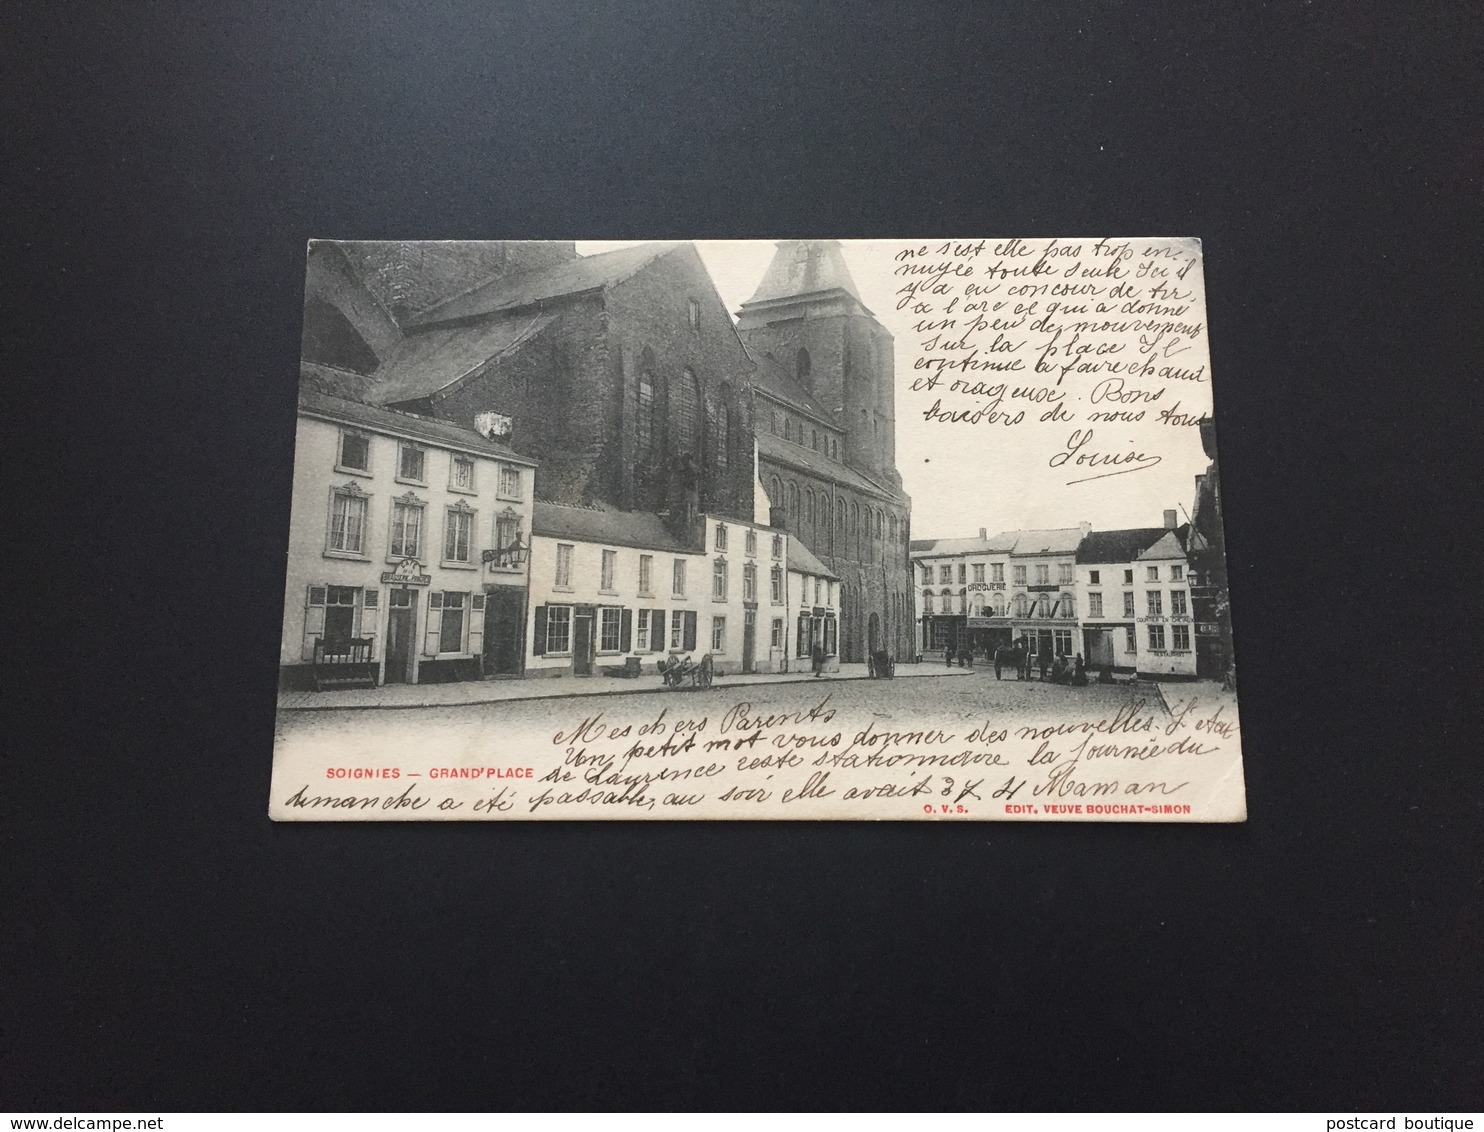 Mes chers Parents
Un petit mot vous donner des nouvelles. L'état
de Laurence reste stationnaire la journée du
dimanche a été passable, au soir elle avait 37 4 Maman
ne s'est elle pas trop en-
nuyée toute seule Ici il
y a eu concour de tir
à l'arc ce qui a donné
un peu de mouvement
sur la place Il
continue a faire chaud
et orageux. Bons
baisers de nous tous
Louise
SOIGNIES — GRAND'PLACE
O. V. S. EDIT. VEUVE BOUCHAT-SIMON
CAFÉ
DROGUERIE
COURTIER EN CHEVAUX
RESTAURANT
delcampe.net
postcard boutique